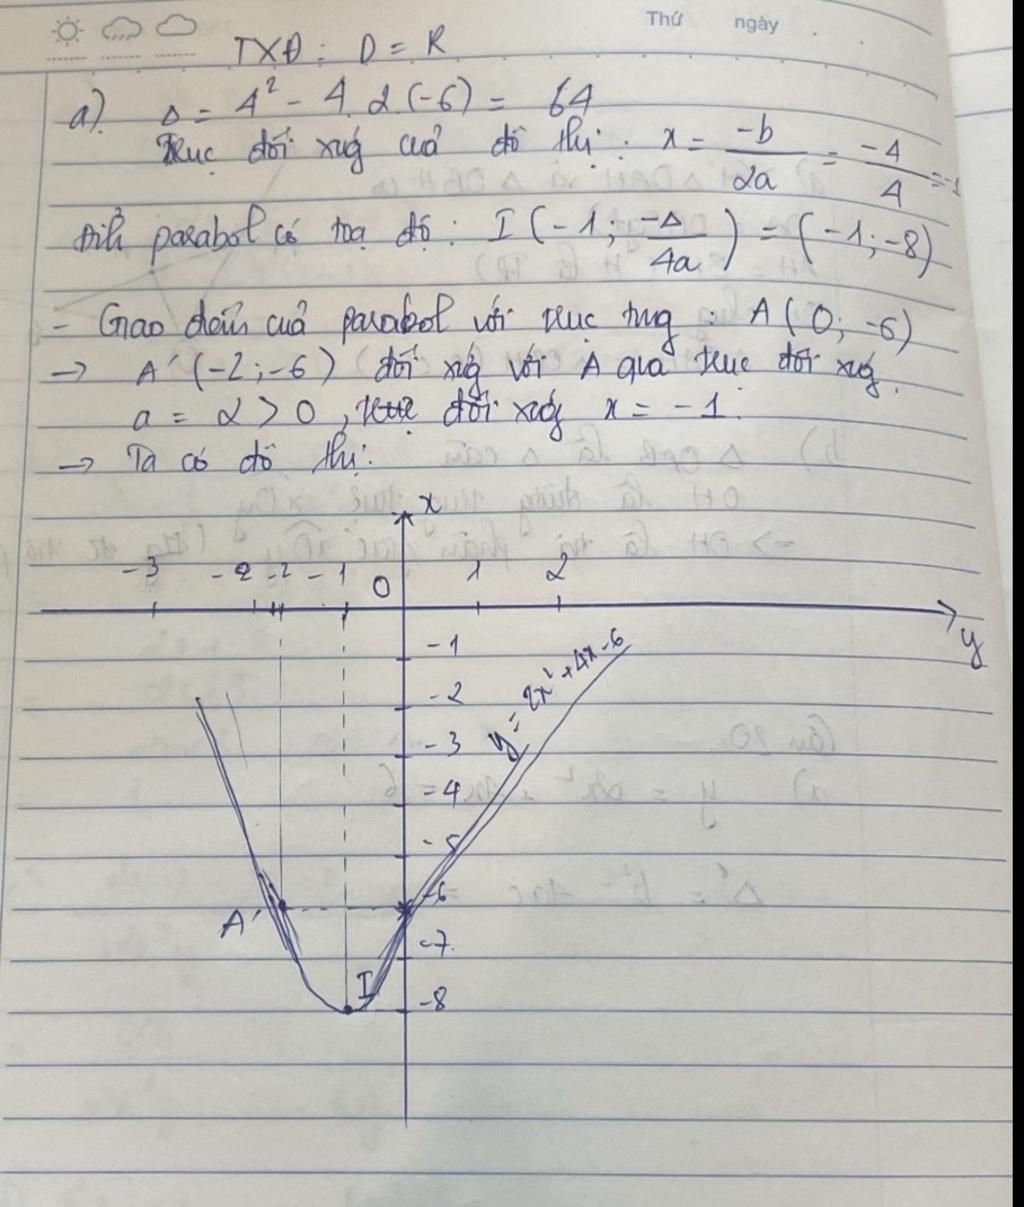 Thứ ngày
TXĐ : D = R
a). Δ = 4² - 4.2(-6) = 64
Trục đối xứg cuả đồ thị : x = -b/2a = -4/4 = -1
Đỉh parabol có toạ độ : I (-1; -Δ/4a) = (-1; -8)
- Giao đểm cuả parabol với trục tug : A (0; -6)
→ A' (-2; -6) đối xứg với A qua trục đối xứg.
a = 2 > 0, trục đối xứg x = -1.
→ Ta có đồ thị:
x
-3 -2 -2 -1 O 1 2
y
-1
-2
-3
-4
-5
-6
-7
-8
y = 2x² + 4x - 6
A'
I